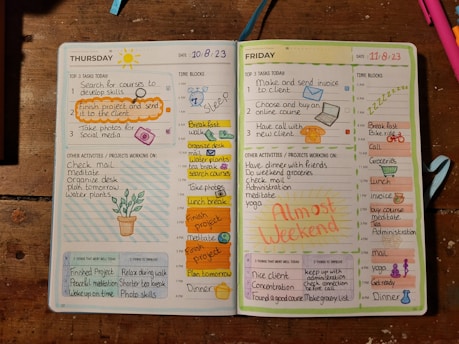 THURSDAY
DATE: 10·8·23
TOP 3 TASKS TODAY
1 Search for courses to
develop skills
2 Finish project and send
it to the client
3 Take photos for
social media
OTHER ACTIVITIES / PROJECTS WORKING ON:
Check mail
Meditate
Organise desk
plan tomorrow
Water plants
TIME BLOCKS
SLEEP
Breakfast
walk
Organise desk
mail
Water plants
tea break
search courses
Take photos
Lunch break
Finish
project
Meditate
Finish
project
Plan tomorrow
Dinner
3 THINGS THAT WENT WELL TODAY
Finished Project
Peaceful meditation
Woke up on time
3 THINGS TO IMPROVE
Relax during walk
Shorter tea break
Photo skills
FRIDAY
DATE: 11·8·23
TOP 3 TASKS TODAY
1 Make and send invoice
to client
2 Choose and buy an
online course
3 Have call with
new client
OTHER ACTIVITIES / PROJECTS WORKING ON:
Have dinner with friends
Do weekend groceries
check mail
Administration
meditate
yoga
Almost
Weekend
TIME BLOCKS
zzzzzzzz
Breakfast
Bike ride
Call
Groceries
Lunch
invoice
buy course
meditate
Tea
Administration
mail
yoga
Get ready
Dinner
3 THINGS THAT WENT WELL TODAY
Nice client
Concentration
Found a good course
3 THINGS TO IMPROVE
keep up with
administration
check connection
before call
Make grocery list